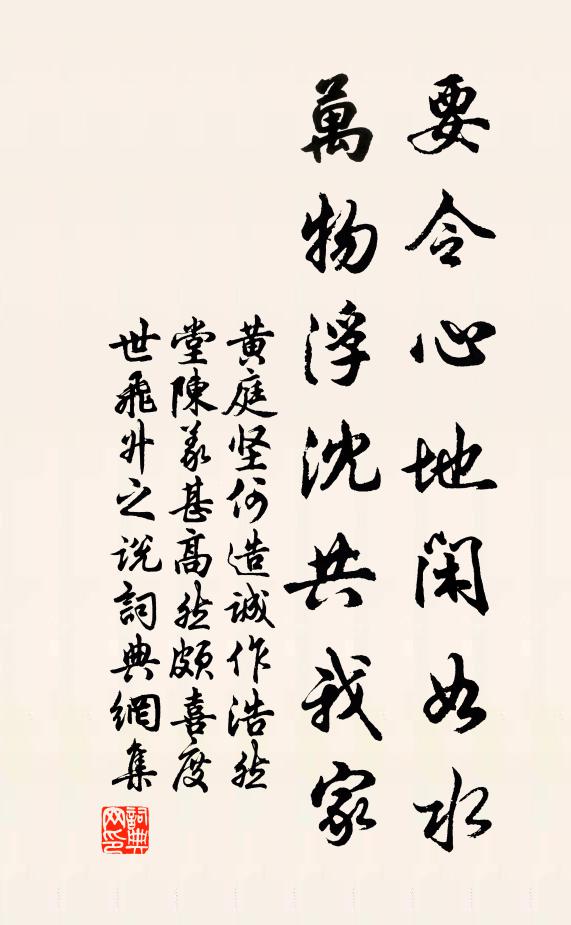 要令心地閑如水
萬物浮沈共我家
黄庭坚何造誠作浩然
堂陳義甚高然頗喜度
世飛升之説詞典網集
詞典網印